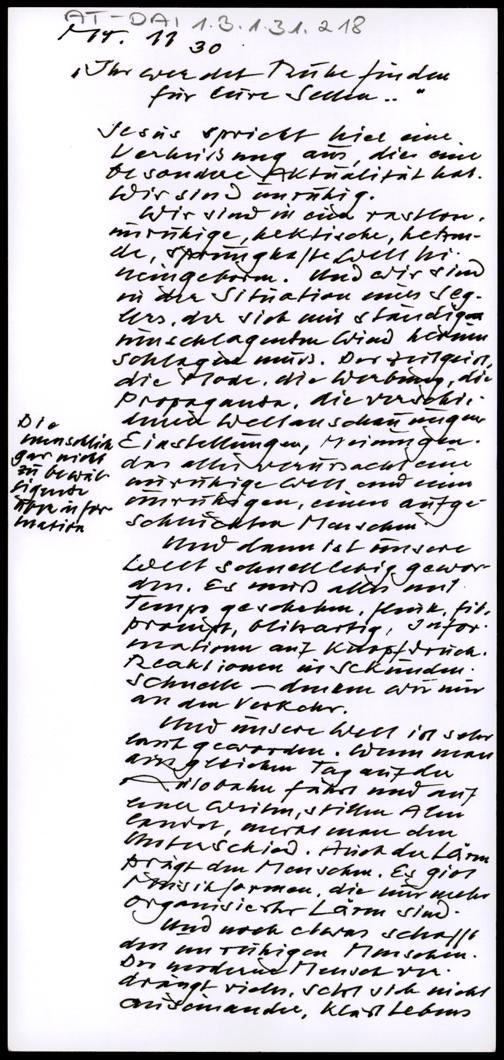 AT-DAI 1.3.1.31.218
Mt. 11 30
"Ihr werdet Ruhe finden
für Eure Seelen.."
Jesus spricht hier eine
Verheißung aus, die eine
besondere Aktualität hat.
Wir sind unruhig.
Wir sind in eine rastlose,
unruhige, hektische,
sprunghafte Welt hi-
neingeboren. Und wir sind
in der Situation eines Seg-
lers, der sich mit ständig
umschlagendem Wind herum
schlagen muss. Der Zeitgeist,
die Mode, die Werbung, die
Propaganda, die verschie-
denen Weltanschauungen
Einstellungen, Meinungen.
das alles verursacht eine
unruhige Welt und einen
unruhigen, einen aufge-
scheuchten Menschen
Die
menschlich
gar nicht
zu bewäl-
tigende
Überinfor-
mation
Und dann ist unsere
Welt schnelllebig gewor-
den. Es muß alles mit
Tempo geschehen, flink, fit,
prompt, blitzartig, Infor-
mationen auf Knopfdruck.
Reaktionen in Sekunden-
schnelle – denken wir nur
an den Verkehr.
Und unsere Welt ist sehr
laut geworden. Wenn man
einen Tag auf der
Autobahn fährt und auf
einer weiten, stillen Alm
landet, merkt man den
Unterschied. Auch der Lärm
prägt den Menschen. Es gibt
Musikformen, die nur mehr
organisierter Lärm sind.
Und noch etwas schafft
den unruhigen Menschen.
Der moderne Mensch ver-
drängt vieles, setzt sich nicht
auseinander, klärt Lebens